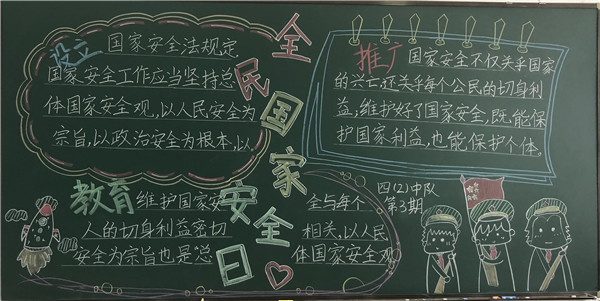 全民国家安全日
设立 国家安全法规定
国家安全工作应当坚持总
体国家安全观,以人民安全为
宗旨,以政治安全为根本,以
推广 国家安全不仅关乎国家
的兴亡还关乎每个公民的切身利
益,维护好了国家安全,既能保
护国家利益,也能保护个体。
教育 维护国家安全与每个
人的切身利益密切相关,以人民
安全为宗旨也是总体国家安全观
四(2)中队
第3期